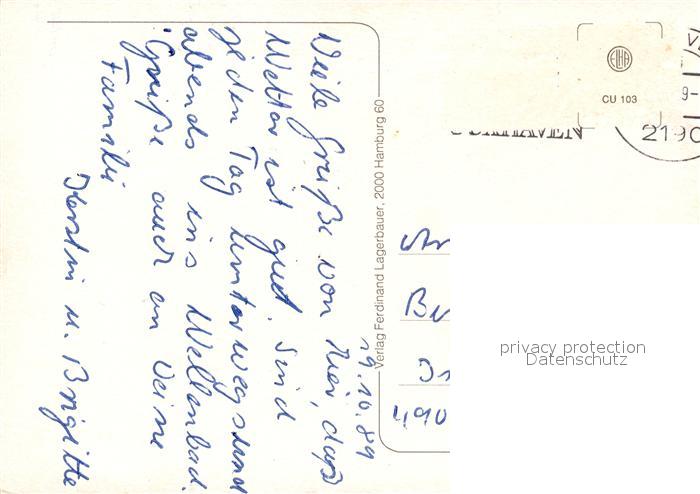 19.10.89
Viele Grüße von hier, das
Wetter ist gut. Sind
jeden Tag unterwegs und
abends ins Wellenbad.
Grüße auch an Deine
Familie
Kerstin u. Brigitte
Verlag Ferdinand Lagerbauer, 2000 Hamburg 60
ELHA
CU 103
9-
2190
490
privacy protection
Datenschutz